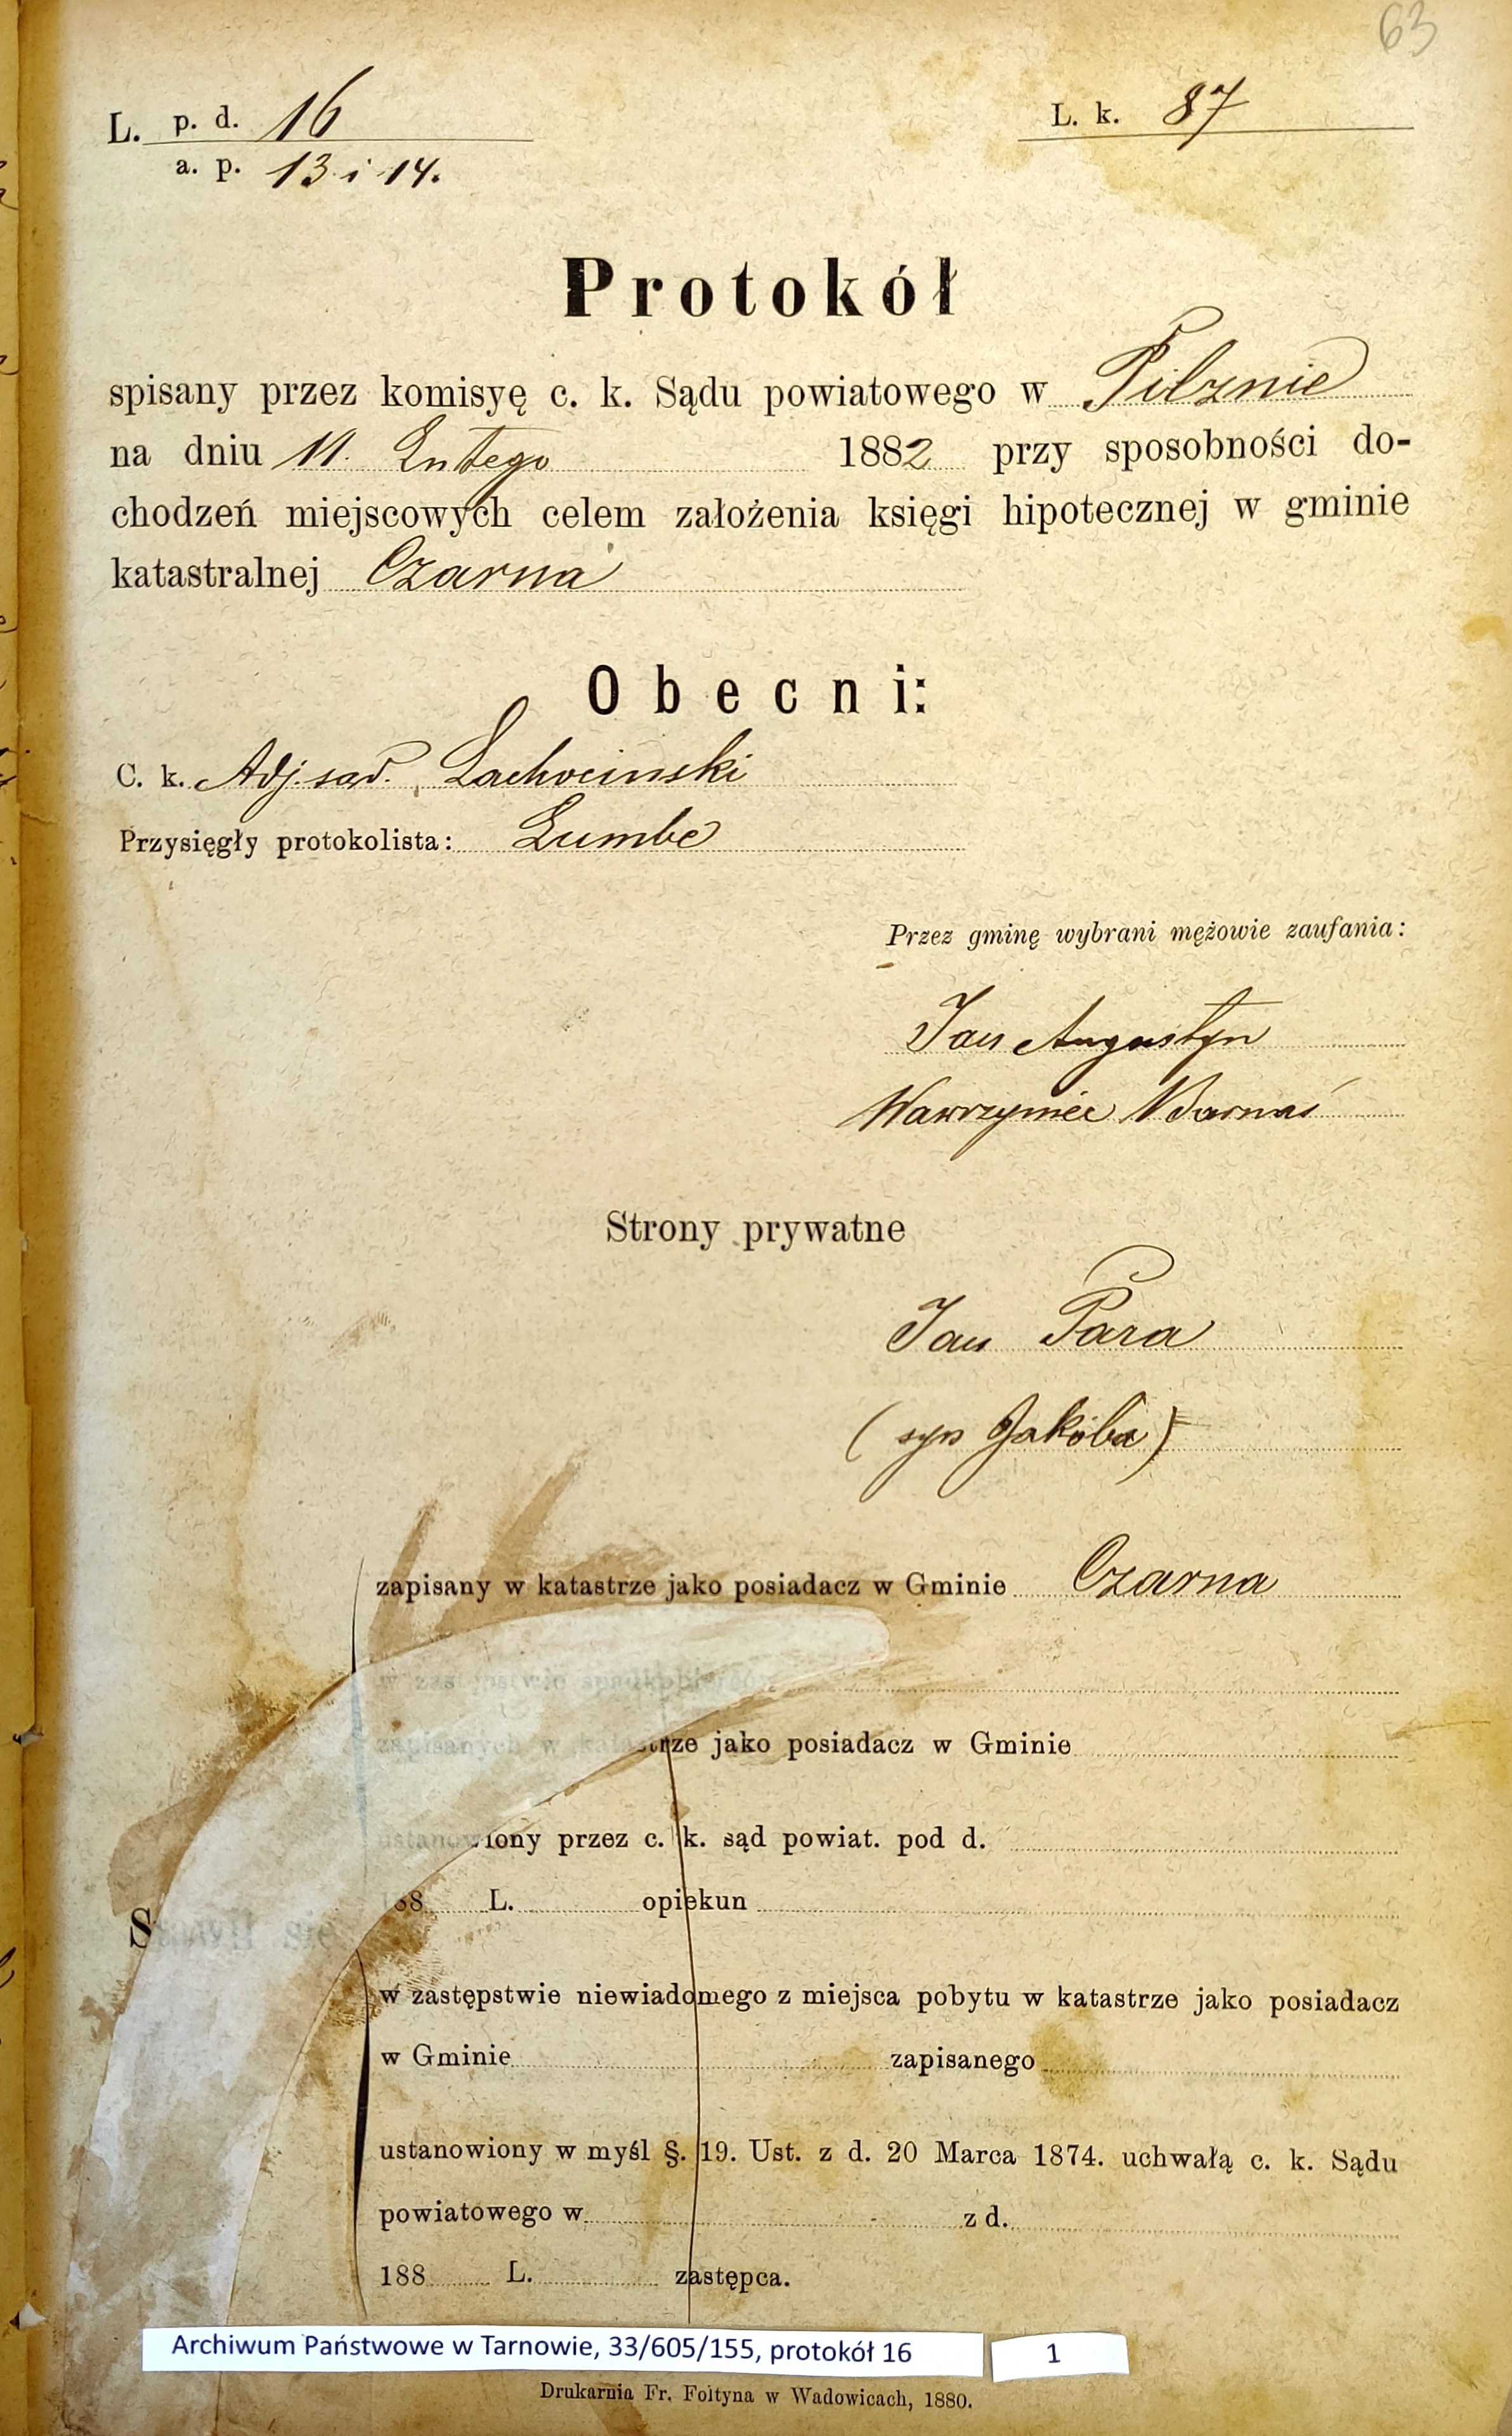 63
L. p. d. 16
a. p. 13 i 14.
L. k. 87
Protokół
spisany przez komisyę c. k. Sądu powiatowego w Pilznie
na dniu 11. Lutego 1882 przy sposobności do-
chodzeń miejscowych celem założenia księgi hipotecznej w gminie
katastralnej Czarna
Obecni:
C. k. Adj. sąd. Lachociński
Przysięgły protokolista: Lumbe
Przez gminę wybrani mężowie zaufania:
Jan Augustyn
Wawrzyniec Barnaś
Strony prywatne
Jan Para
(syn Jakóba)
zapisany w katastrze jako posiadacz w Gminie Czarna
w zastępstwie spadkobierców
zapisanych w katastrze jako posiadacz w Gminie
ustanowiony przez c. k. sąd powiat. pod d.
188 L. opiekun
Stawił się
w zastępstwie niewiadomego z miejsca pobytu w katastrze jako posiadacz
w Gminie zapisanego
ustanowiony w myśl §. 19. Ust. z d. 20 Marca 1874. uchwałą c. k. Sądu
powiatowego w z d.
188 L. zastępca.
Archiwum Państwowe w Tarnowie, 33/605/155, protokół 16
1
Drukarnia Fr. Foltyna w Wadowicach, 1880.